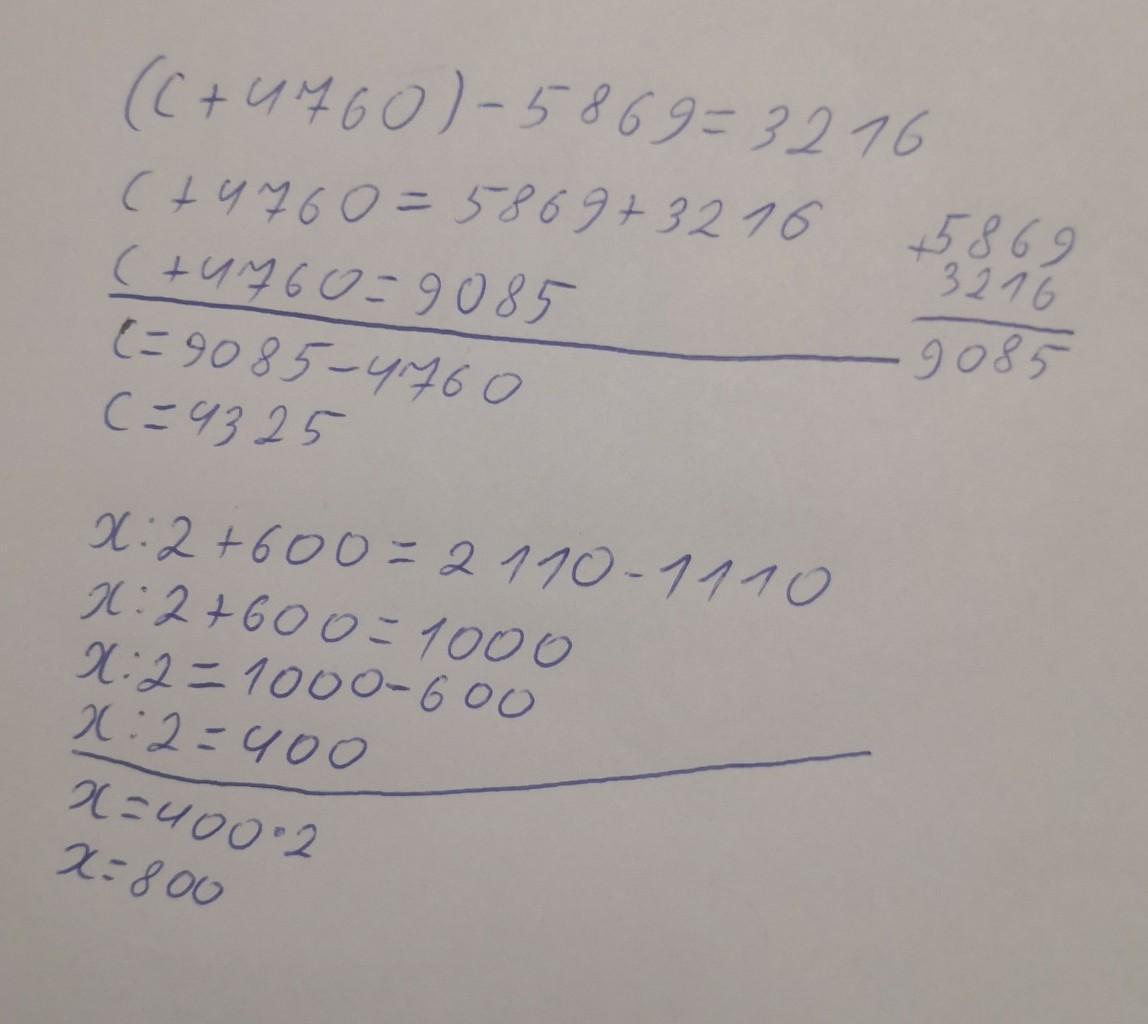 (c+4760)-5869=3216
c+4760=5869+3216
c+4760=9085
c=9085-4760
c=4325
+5869
3216
9085
x:2+600=2110-1110
x:2+600=1000
x:2=1000-600
x:2=400
x=400·2
x=800